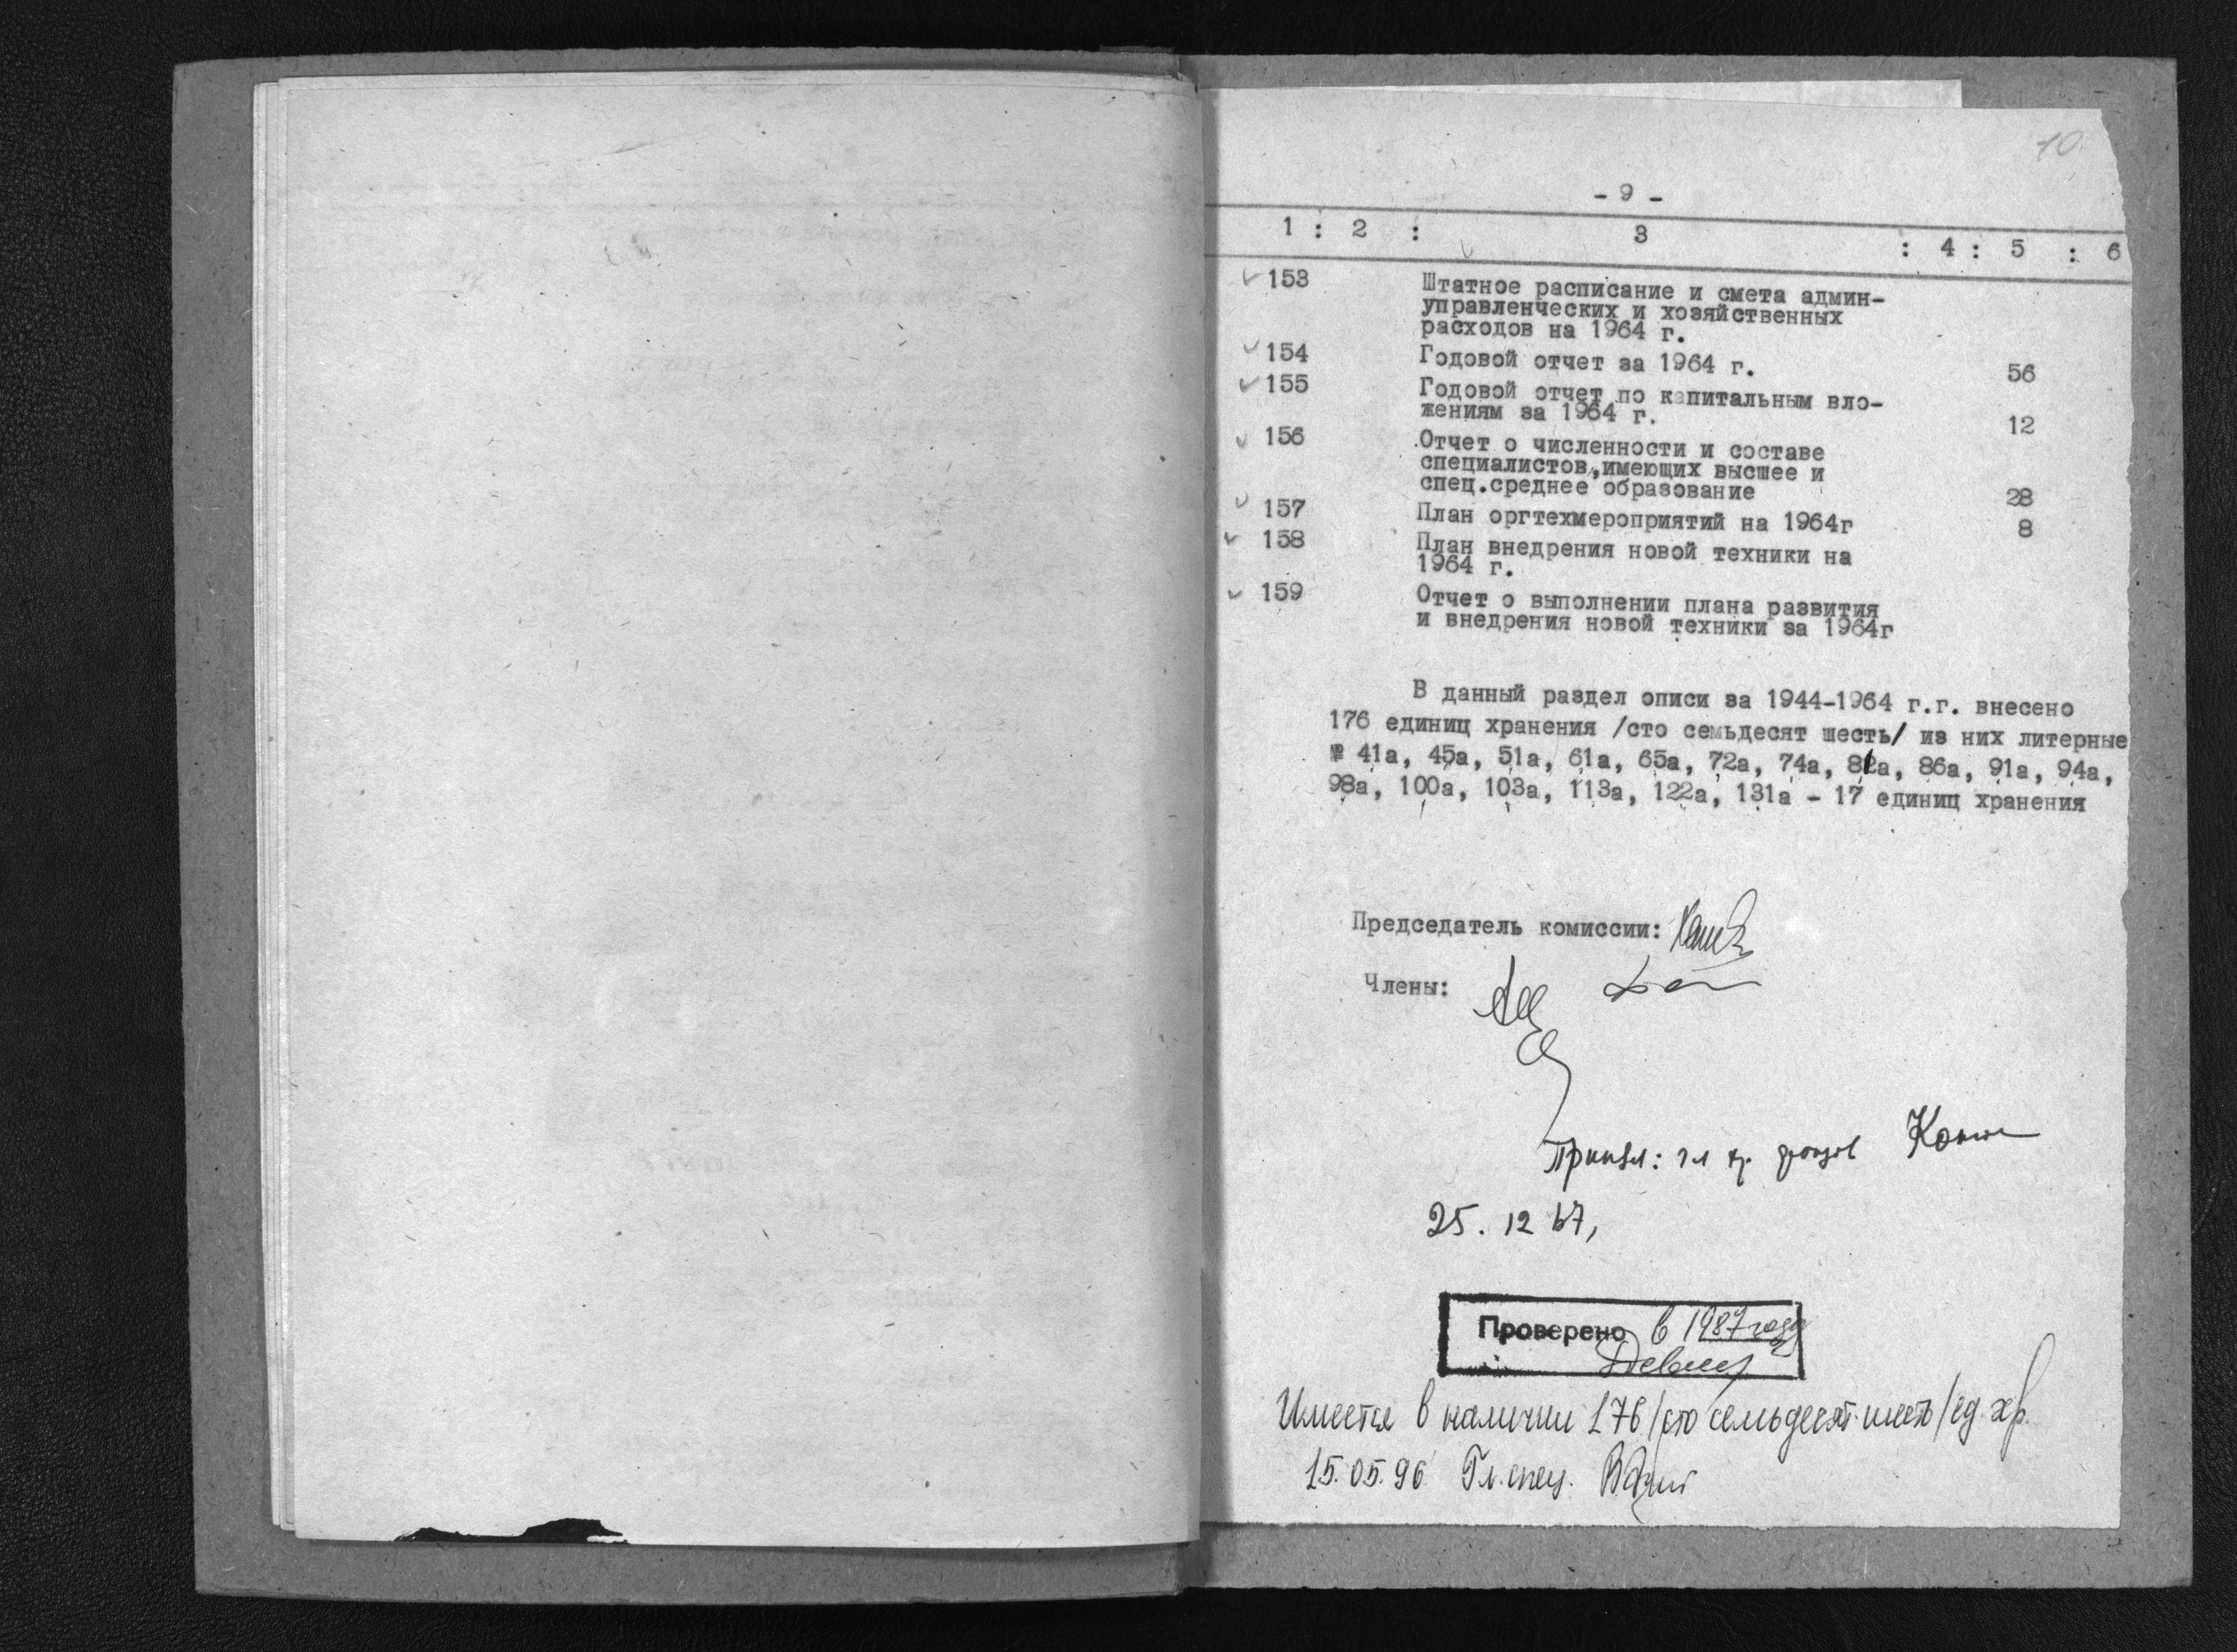 10
- 9 -
1 : 2 : 3 : 4 : 5 : 6
153 Штатное расписание и смета админ-
управленческих и хозяйственных
расходов на 1964 г.
154 Годовой отчет за 1964 г. 56
155 Годовой отчет по капитальным вло-
жениям за 1964 г. 12
156 Отчет о численности и составе
специалистов,имеющих высшее и
спец.среднее образование 28
157 План оргтехмероприятий на 1964г 8
158 План внедрения новой техники на
1964 г.
159 Отчет о выполнении плана развития
и внедрения новой техники за 1964г
В данный раздел описи за 1944-1964 г.г. внесено
176 единиц хранения /сто семьдесят шесть/ из них литерные
№ 41а, 45а, 51а, 61а, 65а, 72а, 74а, 81а, 86а, 91а, 94а,
98а, 100а, 103а, 113а, 122а, 131а - 17 единиц хранения
Председатель комиссии:
Члены:
25. 12 67,
Проверено в 1987 году
Имеется в наличии 176 /сто семьдесят шесть/ ед. хр.
15.05.96 Гл. спец.